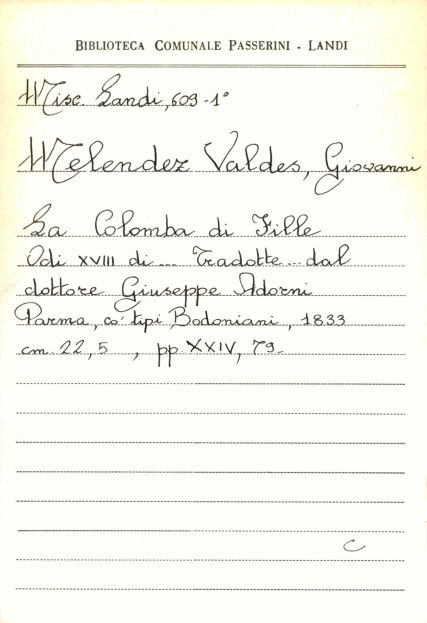 BIBLIOTECA COMUNALE PASSERINI - LANDI
Misc. Landi, 609-1°
Melendez Valdes, Giovanni
La Colomba di Fille
Odi XVIII di ... Tradotte dal
dottore Giuseppe Adorni
Parma, co' tipi Bodoniani, 1833
cm. 22,5, pp. XXIV, 79.
C